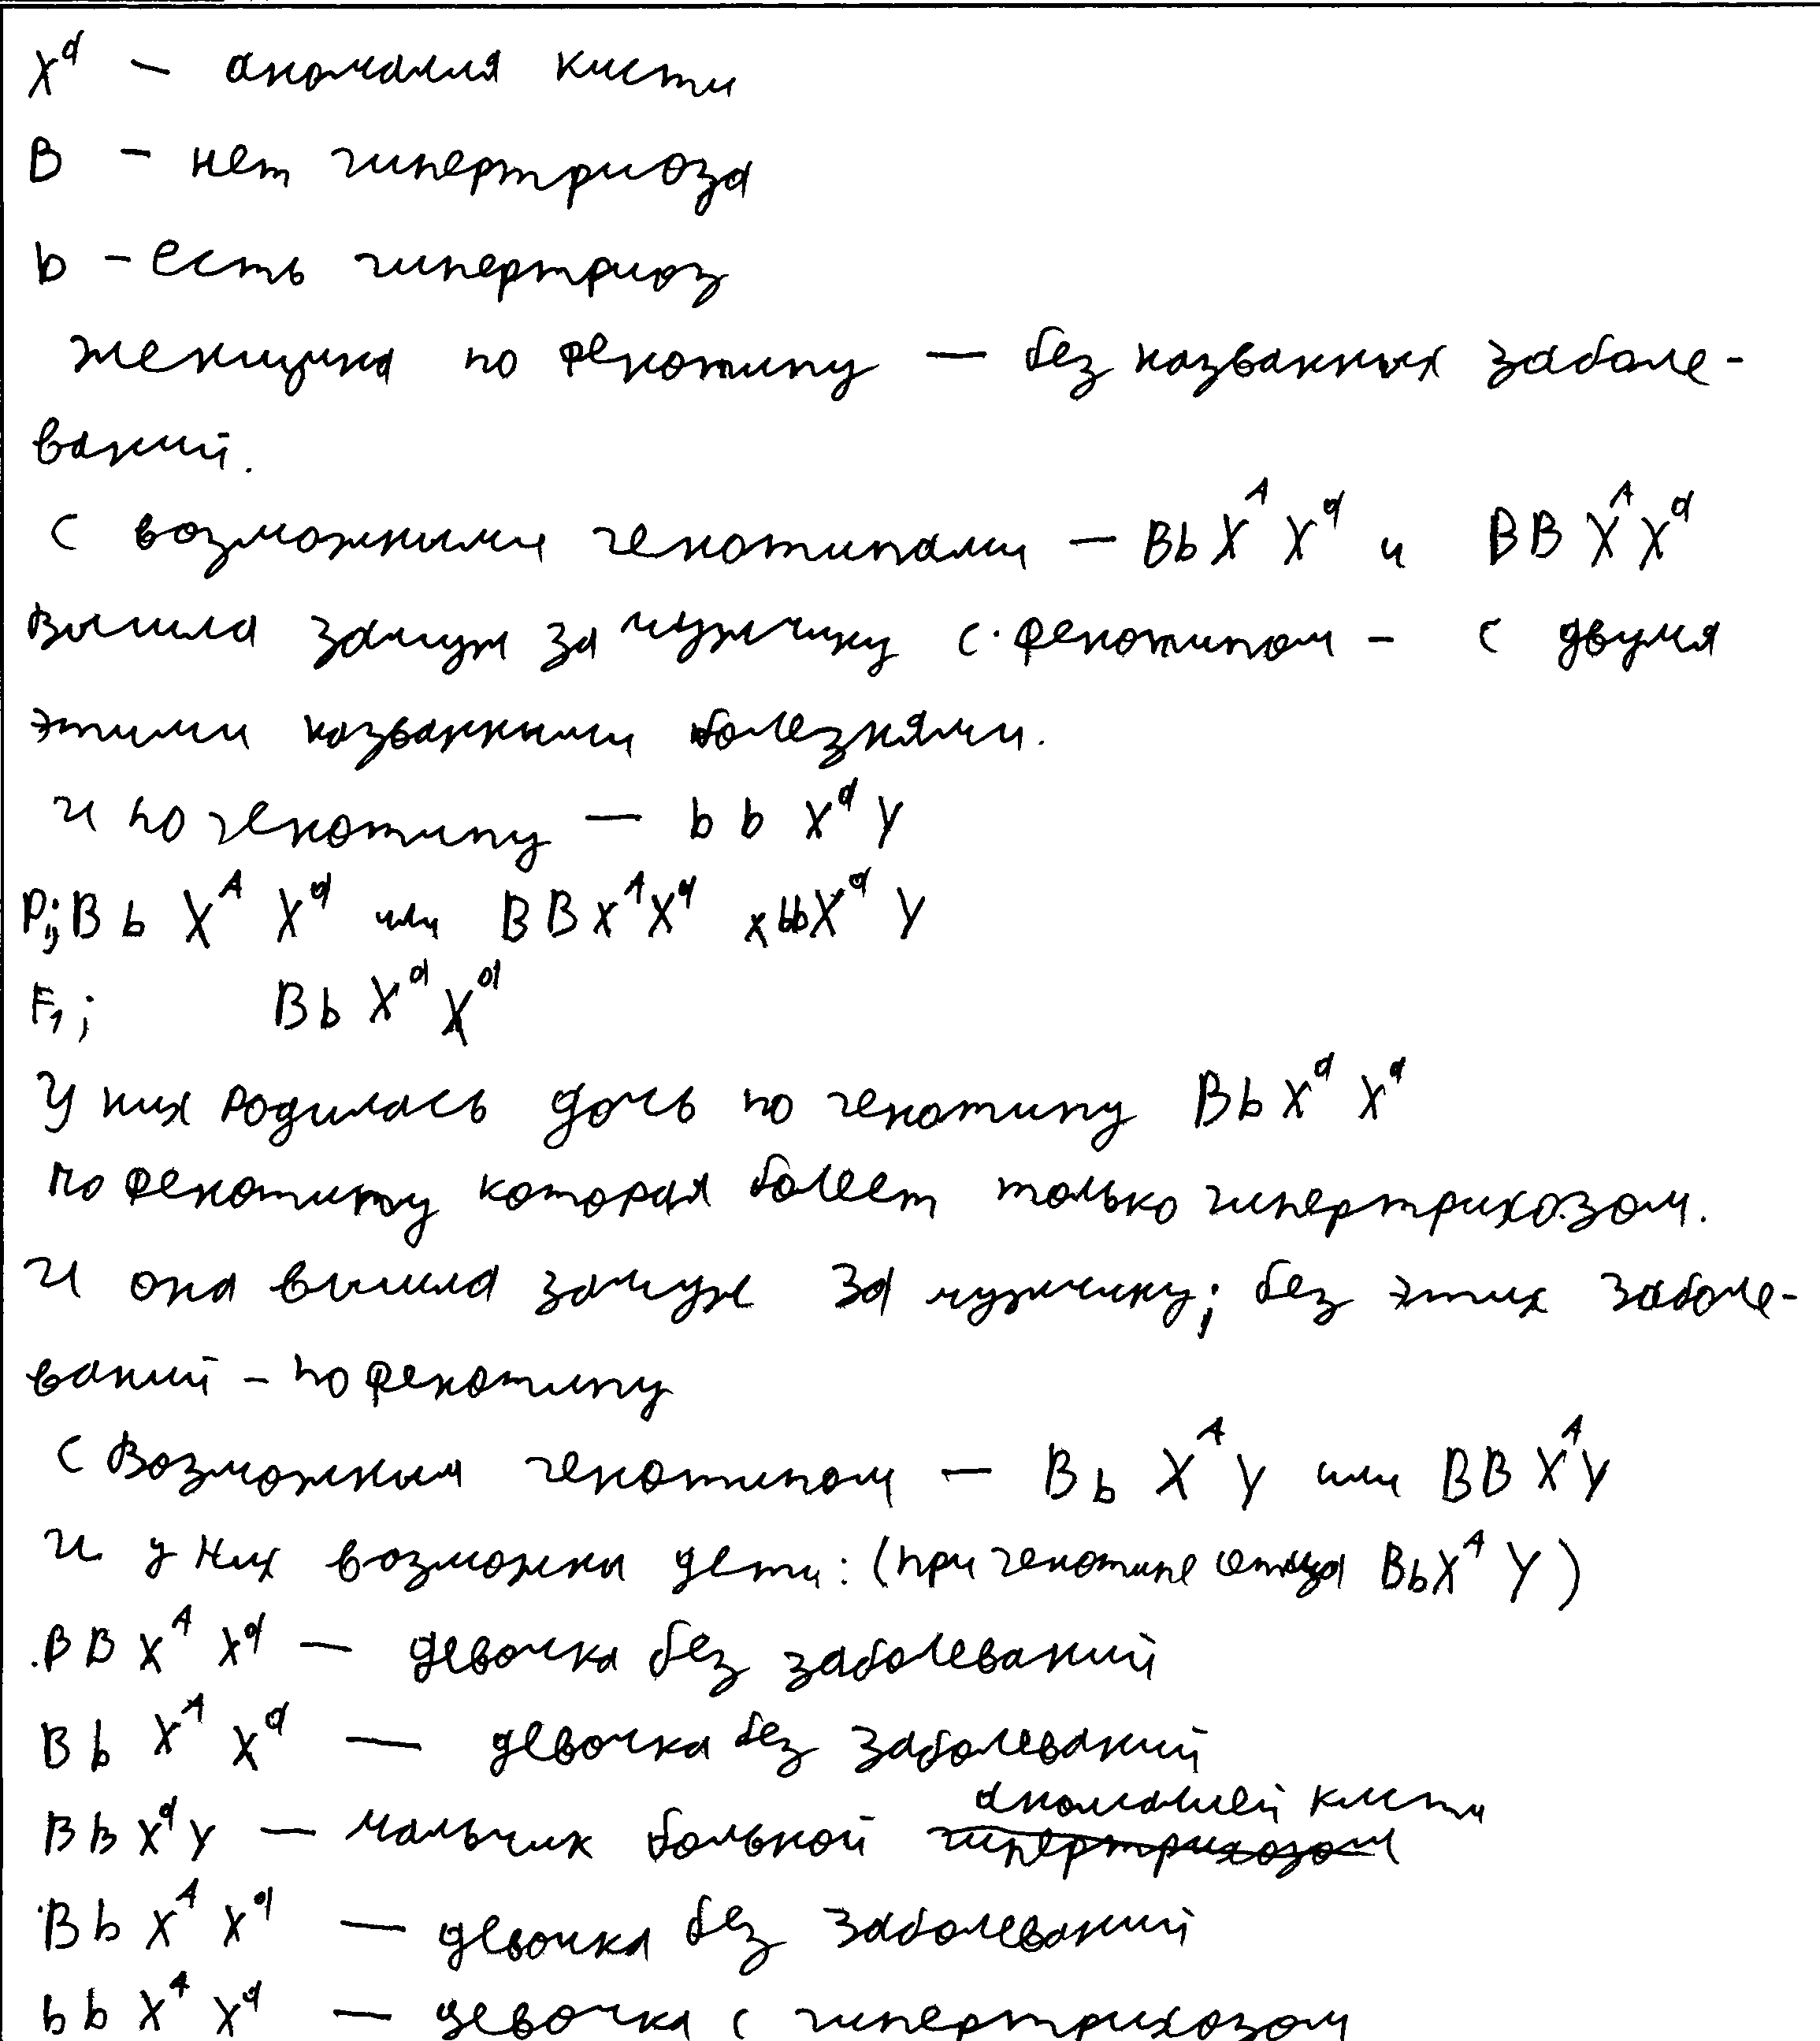 Xᵃ — аномалия кисти
B — нет гипертриоза
b — есть гипертриоз
женщина по фенотипу — без названных заболе-
ваний.
С возможными генотипами — Bb Xᴬ Xᵃ и BB Xᴬ Xᵃ
вышла замуж за мужчину с фенотипом — с двумя
этими названными болезнями.
И по генотипу — b b Xᵃ Y
P; B b Xᴬ Xᵃ или B B Xᴬ Xᵃ x bb Xᵃ Y
F₁; B b Xᵃ Xᵃ
У них родилась дочь по генотипу B b Xᵃ Xᵃ
по фенотипу которая болеет только гипертрихозом.
И она вышла замуж за мужчину; без этих заболе-
ваний — по фенотипу
С возможным генотипом — B b Xᴬ Y или B B Xᴬ Y
И у них возможны дети: (при генотипе отца Bb Xᴬ Y)
B B Xᴬ Xᵃ — девочка без заболеваний
B b Xᴬ Xᵃ — девочка без заболеваний
аномалией кисти
B B Xᵃ Y — мальчик больной гипертрихозом
B b Xᴬ Xᵃ — девочка без заболеваний
b b Xᴬ Xᵃ — девочка с гипертрихозом